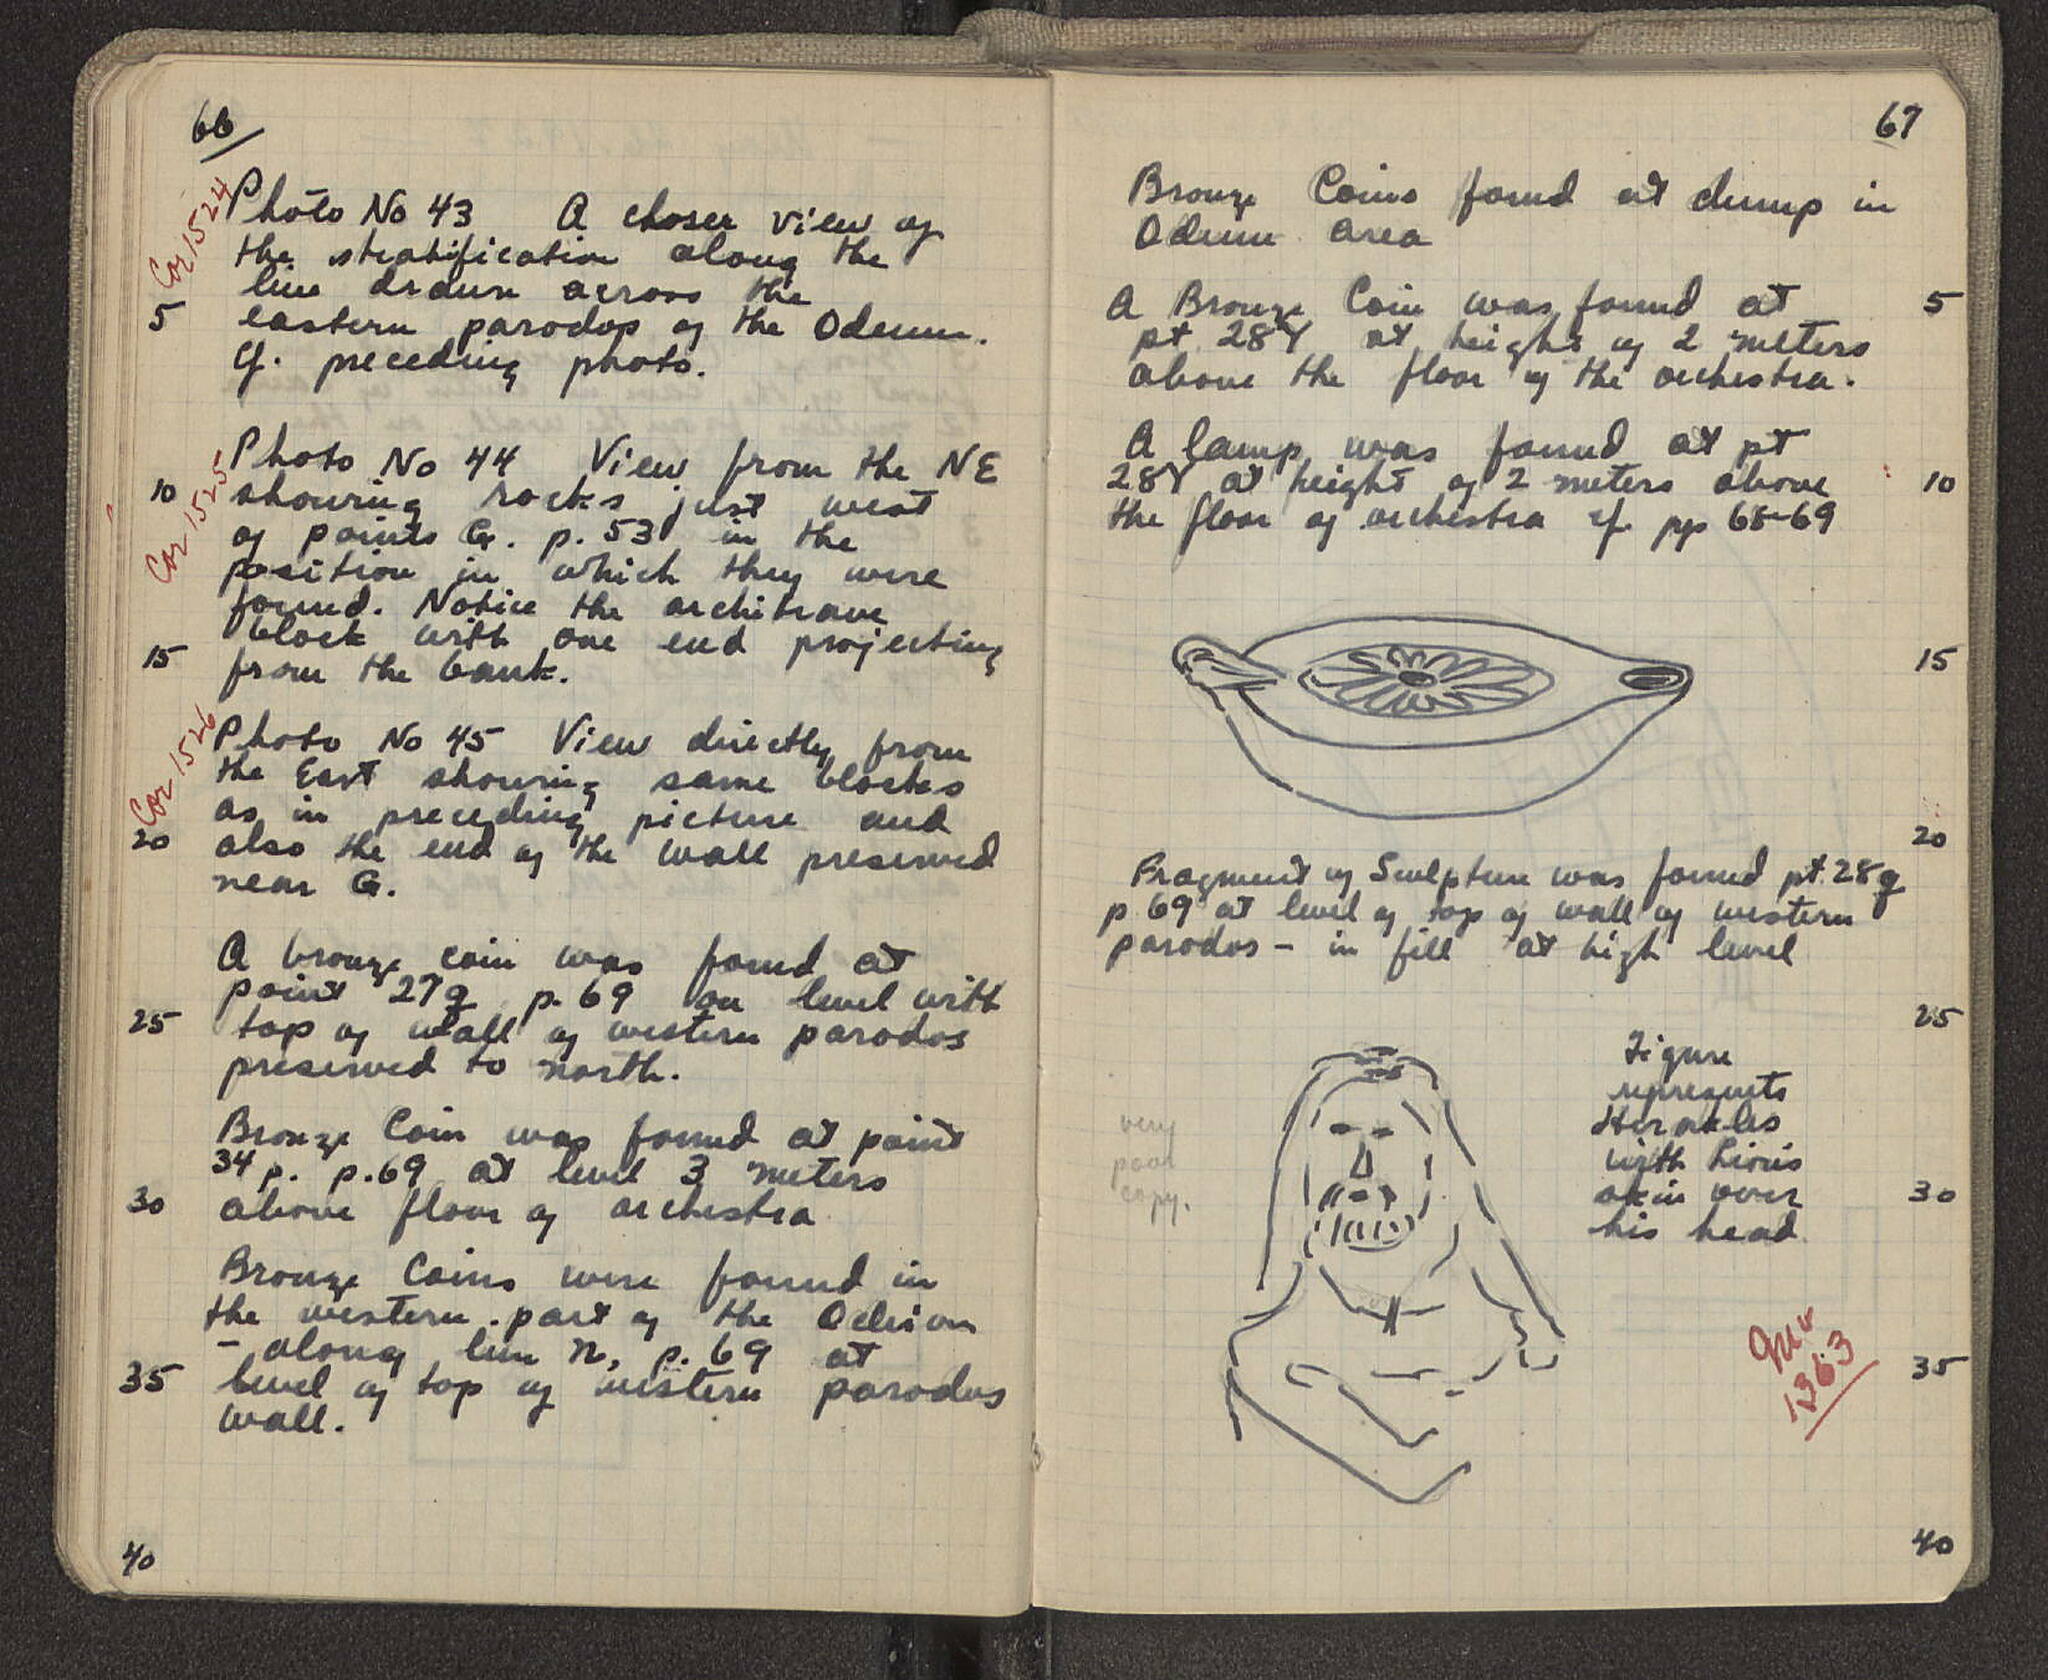 66
Cor 1524
Photo No 43 A closer view of
the stratification along the
line drawn across the
5 eastern parodos of the Odeum.
cf. preceding photo.
Cor 1525
Photo No 44 View from the NE
10 showing rocks just west
of points G. p. 53 in the
position in which they were
found. Notice the architrave
block with one end projecting
15 from the bank.
Cor 1526
Photo No 45 View directly from
the East showing same blocks
as in preceding picture and
20 also the end of the wall preserved
near G.
A bronze coin was found at
point 27q p. 69 on level with
25 top of wall of western parodos
preserved to north.
Bronze Coin was found at point
34 p. p. 69 at level 3 meters
30 above floor of orchestra
Bronze Coins were found in
the western part of the Odeion
- along line n, p. 69 at
35 level of top of western parodos
wall.
40
67
Bronze Coins found at dump in
Odeum area
A Bronze Coin was found at 5
pt 28Y at height of 2 meters
above the floor of the orchestra.
A lamp was found at pt
28Y at height of 2 meters above 10
the floor of orchestra cf. pp 68-69
15
20
Fragment of Sculpture was found pt. 28q
p. 69 at level of top of wall of western
parodos - in fill at high level
25
Figure
represents
Herakles
with Lion's
skin over 30
his head
very
poor
copy.
1363
35
40